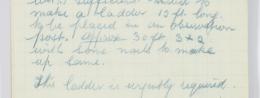 make a ladder 15 ft long
to be placed in an observation
post. Approx 30 ft 3 x 2
with some nails to make
up same.
This ladder is urgently required.